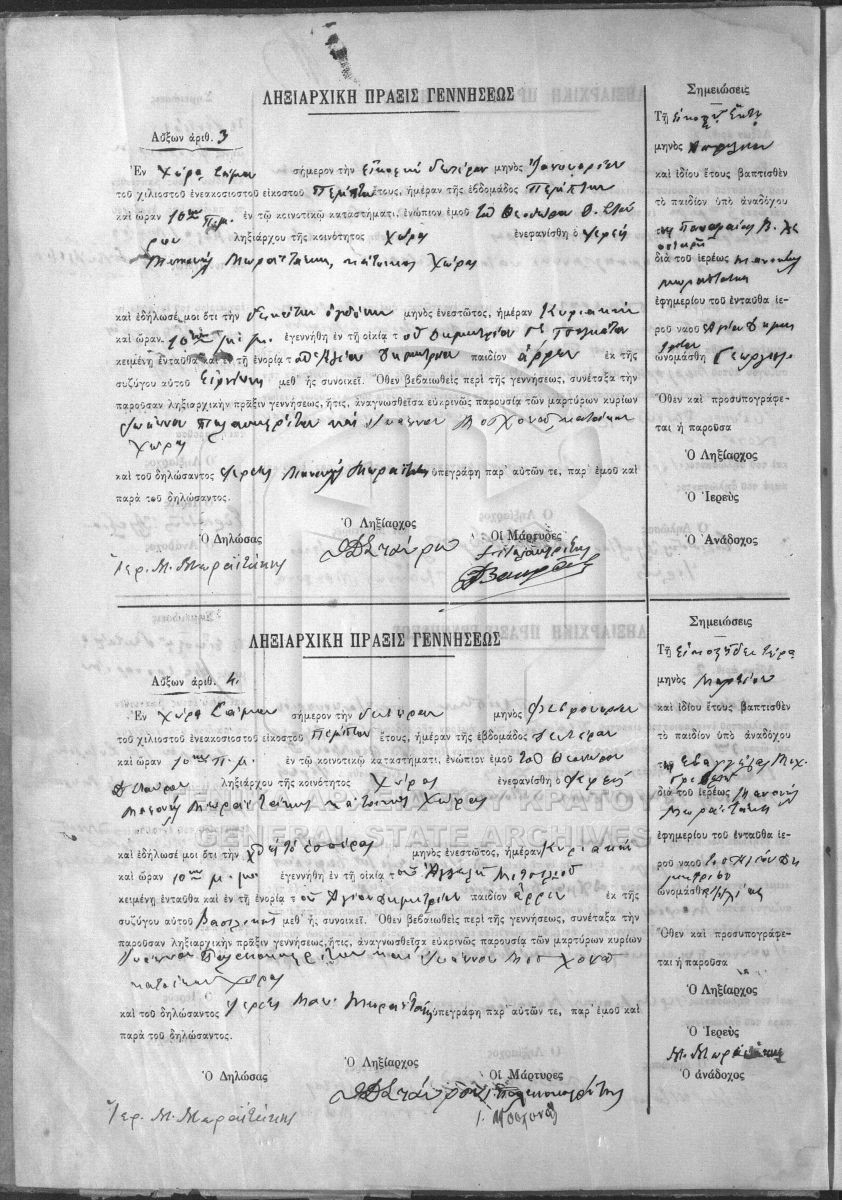 ΛΗΞΙΑΡΧΙΚΗ ΠΡΑΞΙΣ ΓΕΝΝΗΣΕΩΣ
Αὔξων ἀριθ. 3
Ἐν Χώρᾳ Σάμου σήμερον τὴν εἰκοστὴν δευτέραν μηνὸς Ἰανουαρίου
τοῦ χιλιοστοῦ ἐνεακοσιοστοῦ εἰκοστοῦ Πέμπτου ἔτους, ἡμέραν τῆς ἑβδομάδος Πέμπτην
καὶ ὥραν 10ην π.μ. ἐν τῷ κοινοτικῷ καταστήματι, ἐνώπιον ἐμοῦ τοῦ Θεοδώρου Θ. Σταύ
ρου ληξιάρχου τῆς κοινότητος Χώρας ἐνεφανίσθη ὁ ἱερεὺς
Μανουὴλ Μωραϊτάκης, κάτοικος Χώρας
καὶ ἐδήλωσέ μοι ὅτι τὴν δεκάτην ὀγδόην μηνὸς ἐνεστῶτος, ἡμέραν Κυριακὴν
καὶ ὥραν 10ην μ.μ. ἐγεννήθη ἐν τῇ οἰκίᾳ τοῦ Δημητρίου
κειμένῃ ἐνταῦθα καὶ ἐν τῇ ἐνορίᾳ τοῦ Ἁγίου Δημητρίου παιδίον ἄρρεν ἐκ τῆς
συζύγου αὐτοῦ Εἰρήνης μεθ᾽ ἧς συνοικεῖ. Ὅθεν βεβαιωθεὶς περὶ τῆς γεννήσεως, συνέταξα τὴν
παροῦσαν ληξιαρχικὴν πρᾶξιν γεννήσεως, ἥτις, ἀναγνωσθεῖσα εὐκρινῶς παρουσίᾳ τῶν μαρτύρων κυρίων
Ἰωάννου Παλαιοκρίτου καὶ Ἰωάννου Μοσχονᾶ, κατοίκων
Χώρας
καὶ τοῦ δηλώσαντος ἱερέως Μανουὴλ Μωραϊτάκη ὑπεγράφη παρ᾽ αὐτῶν τε, παρ᾽ ἐμοῦ καὶ
παρὰ τοῦ δηλώσαντος.
Ὁ Δηλώσας
Ὁ Ληξίαρχος
Οἱ Μάρτυρες
Ἱερ. Μ. Μωραϊτάκης
ΘΘΣταύρου
Σημειώσεις
Τῇ εἰκοστῇ ἕκτῃ
μηνὸς Ἀπριλίου
καὶ ἰδίου ἔτους βαπτισθὲν
τὸ παιδίον ὑπὸ ἀναδόχου
διὰ τοῦ ἱερέως Μανουὴλ
Μωραϊτάκη
ἐφημερίου τοῦ ἐνταῦθα ἱε-
ροῦ ναοῦ Ἁγίου Δημη
τρίου
ὠνομάσθη Γεώργιος
Ὅθεν καὶ προσυπογράφε-
ται ἡ παροῦσα
Ὁ Ληξίαρχος
Ὁ Ἱερεὺς
Ὁ Ἀνάδοχος
ΛΗΞΙΑΡΧΙΚΗ ΠΡΑΞΙΣ ΓΕΝΝΗΣΕΩΣ
Αὔξων ἀριθ. 4.
Ἐν Χώρᾳ Σάμου σήμερον τὴν δευτέραν μηνὸς Φεβρουαρίου
τοῦ χιλιοστοῦ ἐνεακοσιοστοῦ εἰκοστοῦ Πέμπτου ἔτους, ἡμέραν τῆς ἑβδομάδος Δευτέραν
καὶ ὥραν 10ην π.μ. ἐν τῷ κοινοτικῷ καταστήματι, ἐνώπιον ἐμοῦ τοῦ Θεοδώρου
Θ Σταύρου ληξιάρχου τῆς κοινότητος Χώρας ἐνεφανίσθη ὁ ἱερεὺς
Μανουὴλ Μωραϊτάκης κάτοικος Χώρας
ΓΕΝΙΚΑ ΑΡΧΕΙΑ ΤΟΥ ΚΡΑΤΟΥΣ
GENERAL STATE ARCHIVES
καὶ ἐδήλωσέ μοι ὅτι τὴν χθὲς τὸ ἑσπέρας μηνὸς ἐνεστῶτος, ἡμέραν Κυριακὴν
καὶ ὥραν 10ην μ.μ. ἐγεννήθη ἐν τῇ οἰκίᾳ τοῦ
κειμένῃ ἐνταῦθα καὶ ἐν τῇ ἐνορίᾳ τοῦ Ἁγίου Δημητρίου παιδίον ἄρρεν ἐκ τῆς
συζύγου αὐτοῦ Βασιλικῆς μεθ᾽ ἧς συνοικεῖ. Ὅθεν βεβαιωθεὶς περὶ τῆς γεννήσεως, συνέταξα τὴν
παροῦσαν ληξιαρχικὴν πρᾶξιν γεννήσεως, ἥτις, ἀναγνωσθεῖσα εὐκρινῶς παρουσίᾳ τῶν μαρτύρων κυρίων
Ἰωάννου καὶ Ἰωάννου Μοσχονᾶ
κατοίκων Χώρας
καὶ τοῦ δηλώσαντος ἱερέως Μαν. Μωραϊτάκη ὑπεγράφη παρ᾽ αὐτῶν τε, παρ᾽ ἐμοῦ καὶ
παρὰ τοῦ δηλώσαντος.
Ὁ Δηλώσας
Ὁ Ληξίαρχος
Οἱ Μάρτυρες
Ἱερ. Μ. Μωραϊτάκης
ΘΘΣταύρου
Ι. Μοσχονᾶς
Σημειώσεις
Τῇ εἰκοστῇ δευτέρᾳ
μηνὸς Μαρτίου
καὶ ἰδίου ἔτους βαπτισθὲν
τὸ παιδίον ὑπὸ ἀναδόχου
διὰ τοῦ ἱερέως Μανουὴλ
Μωραϊτάκη
ἐφημερίου τοῦ ἐνταῦθα ἱε-
ροῦ ναοῦ τοῦ Ἁγίου Δη
μητρίου
ὠνομάσθη Ἠλίας
Ὅθεν καὶ προσυπογράφε-
ται ἡ παροῦσα
Ὁ Ληξίαρχος
Ὁ Ἱερεὺς
Μ. Μωραϊτάκης
Ὁ ἀνάδοχος